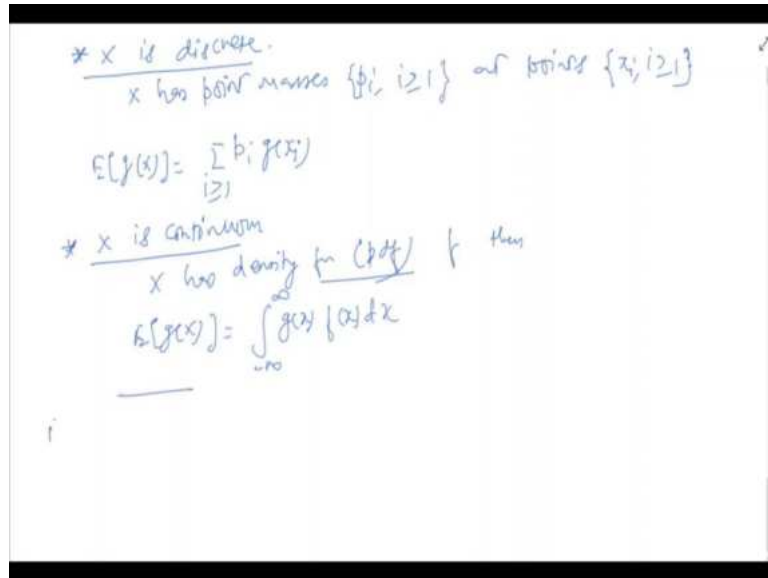 * X is discrete.
X has point masses {pi, i≥1} at points {xi, i≥1}
E[g(X)] = Σ i≥1 pi g(xi)
* X is continuous
X has density fn (pdf) f then
E[g(X)] = ∫_{-∞}^{∞} g(x) f(x) dx
i